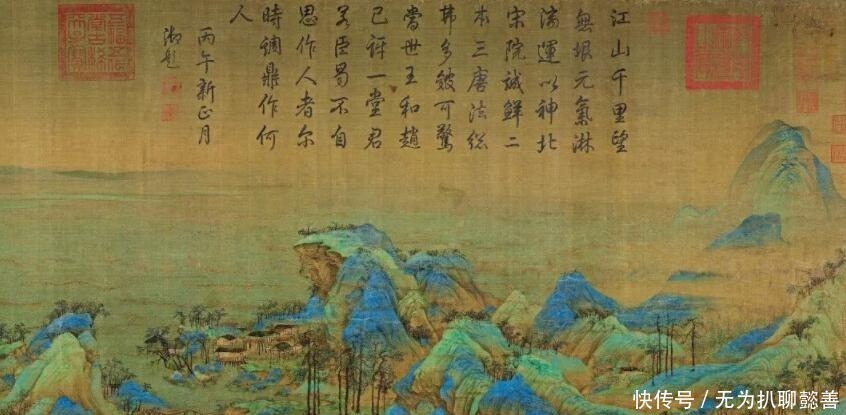 江山千里望
無垠元氣淋
漓運以神北
宋院誠鮮二
本三唐法總
弗多皴可驚
當世王和趙
已訝一堂君
若臣曷不自
思作人者爾
時調鼎作何
人
丙午新正月
御題
快传号 / 无为扒聊懿善